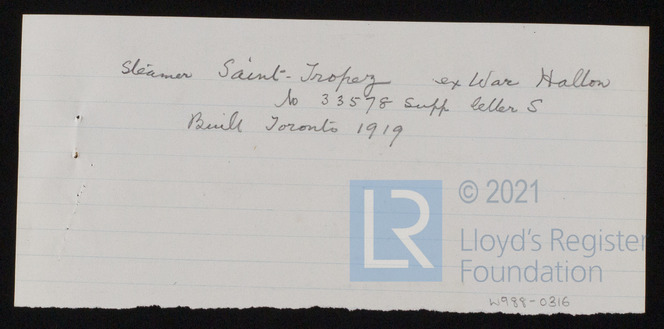 Steamer Saint-Tropez ex War Hallon
No 33578 Supp letter S
Built Toronto 1919
LR
© 2021
Lloyd's Register
Foundation
W988-0316